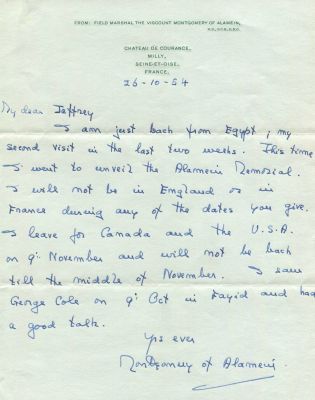 FROM: FIELD MARSHAL THE VISCOUNT MONTGOMERY OF ALAMEIN,
K.G., G.C.B., D.S.O.
CHATEAU DE COURANCE,
MILLY,
SEINE-ET-OISE,
FRANCE.
26-10-54
My dear Jeffrey
I am just back from Egypt; my
second visit in the last two weeks. This time
I went to unveil the Alamein Memorial.
I will not be in England or in
France during any of the dates you give.
I leave for Canada and the U.S.A.
on 9: November and will not be back
till the middle of November. I saw
George Cole on 9: Oct in Fayid and had
a good talk.
Yrs ever
Montgomery of Alamein